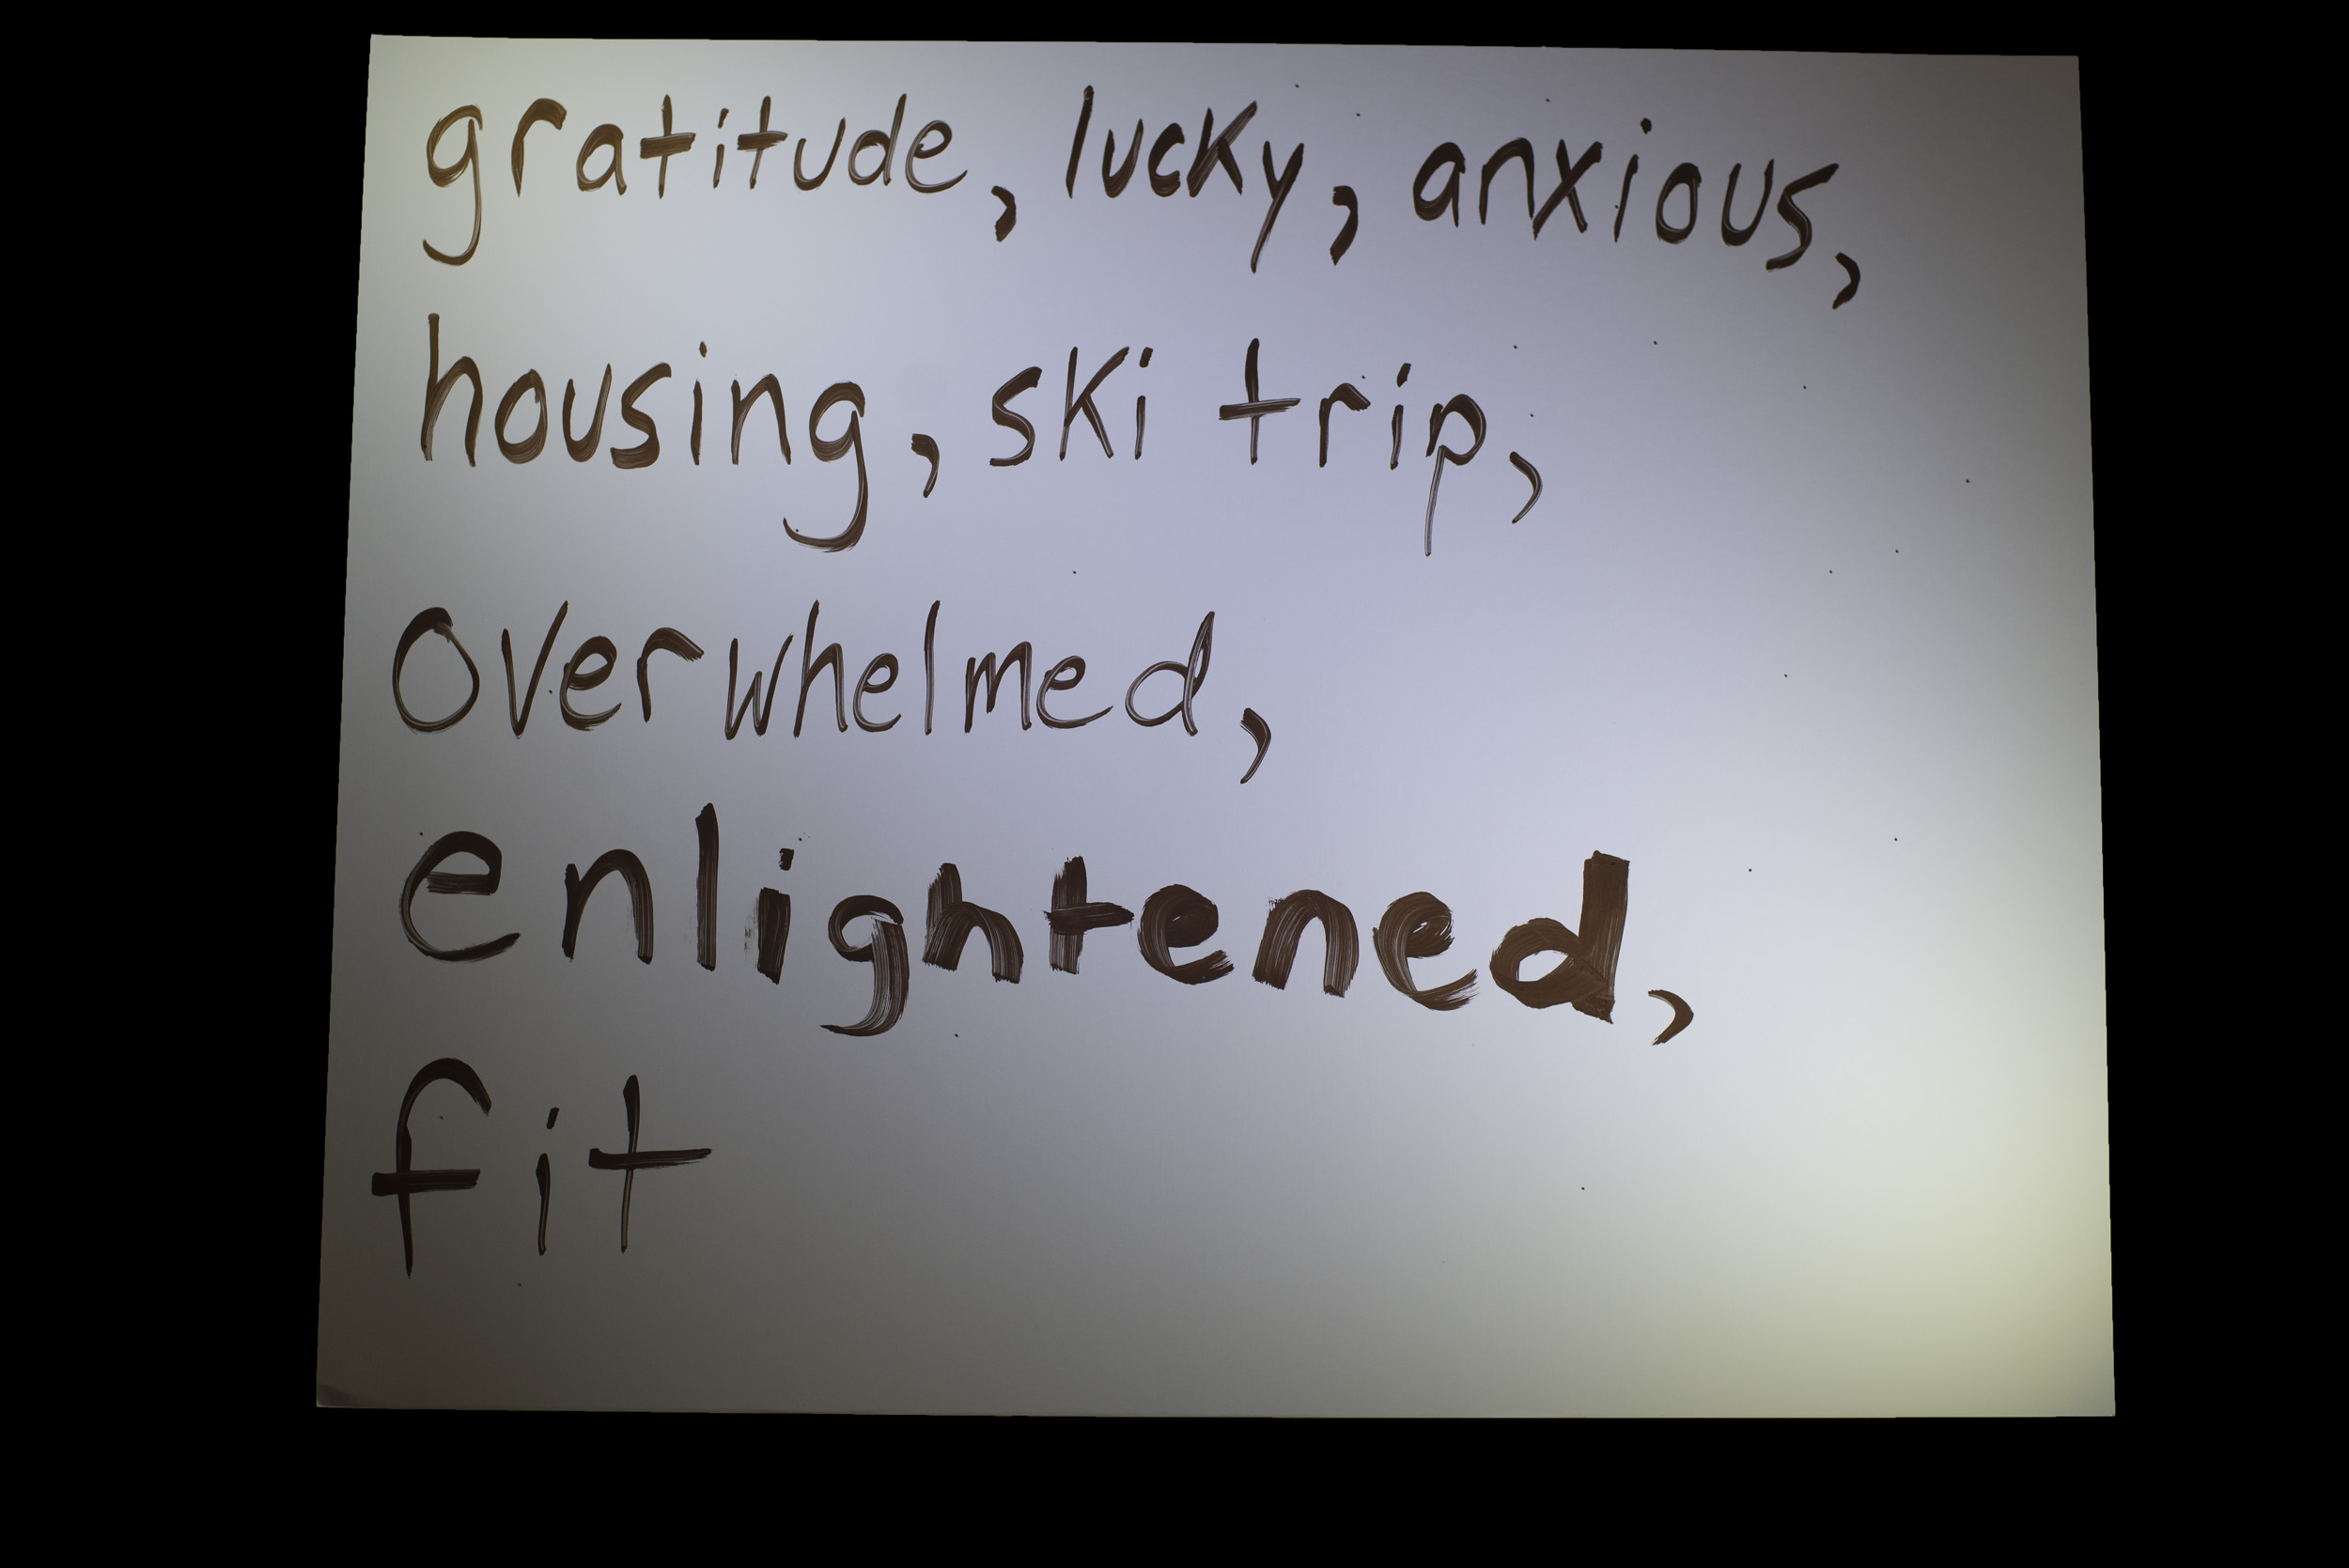 gratitude, lucky, anxious,
housing, ski trip,
overwhelmed,
enlightened,
fit